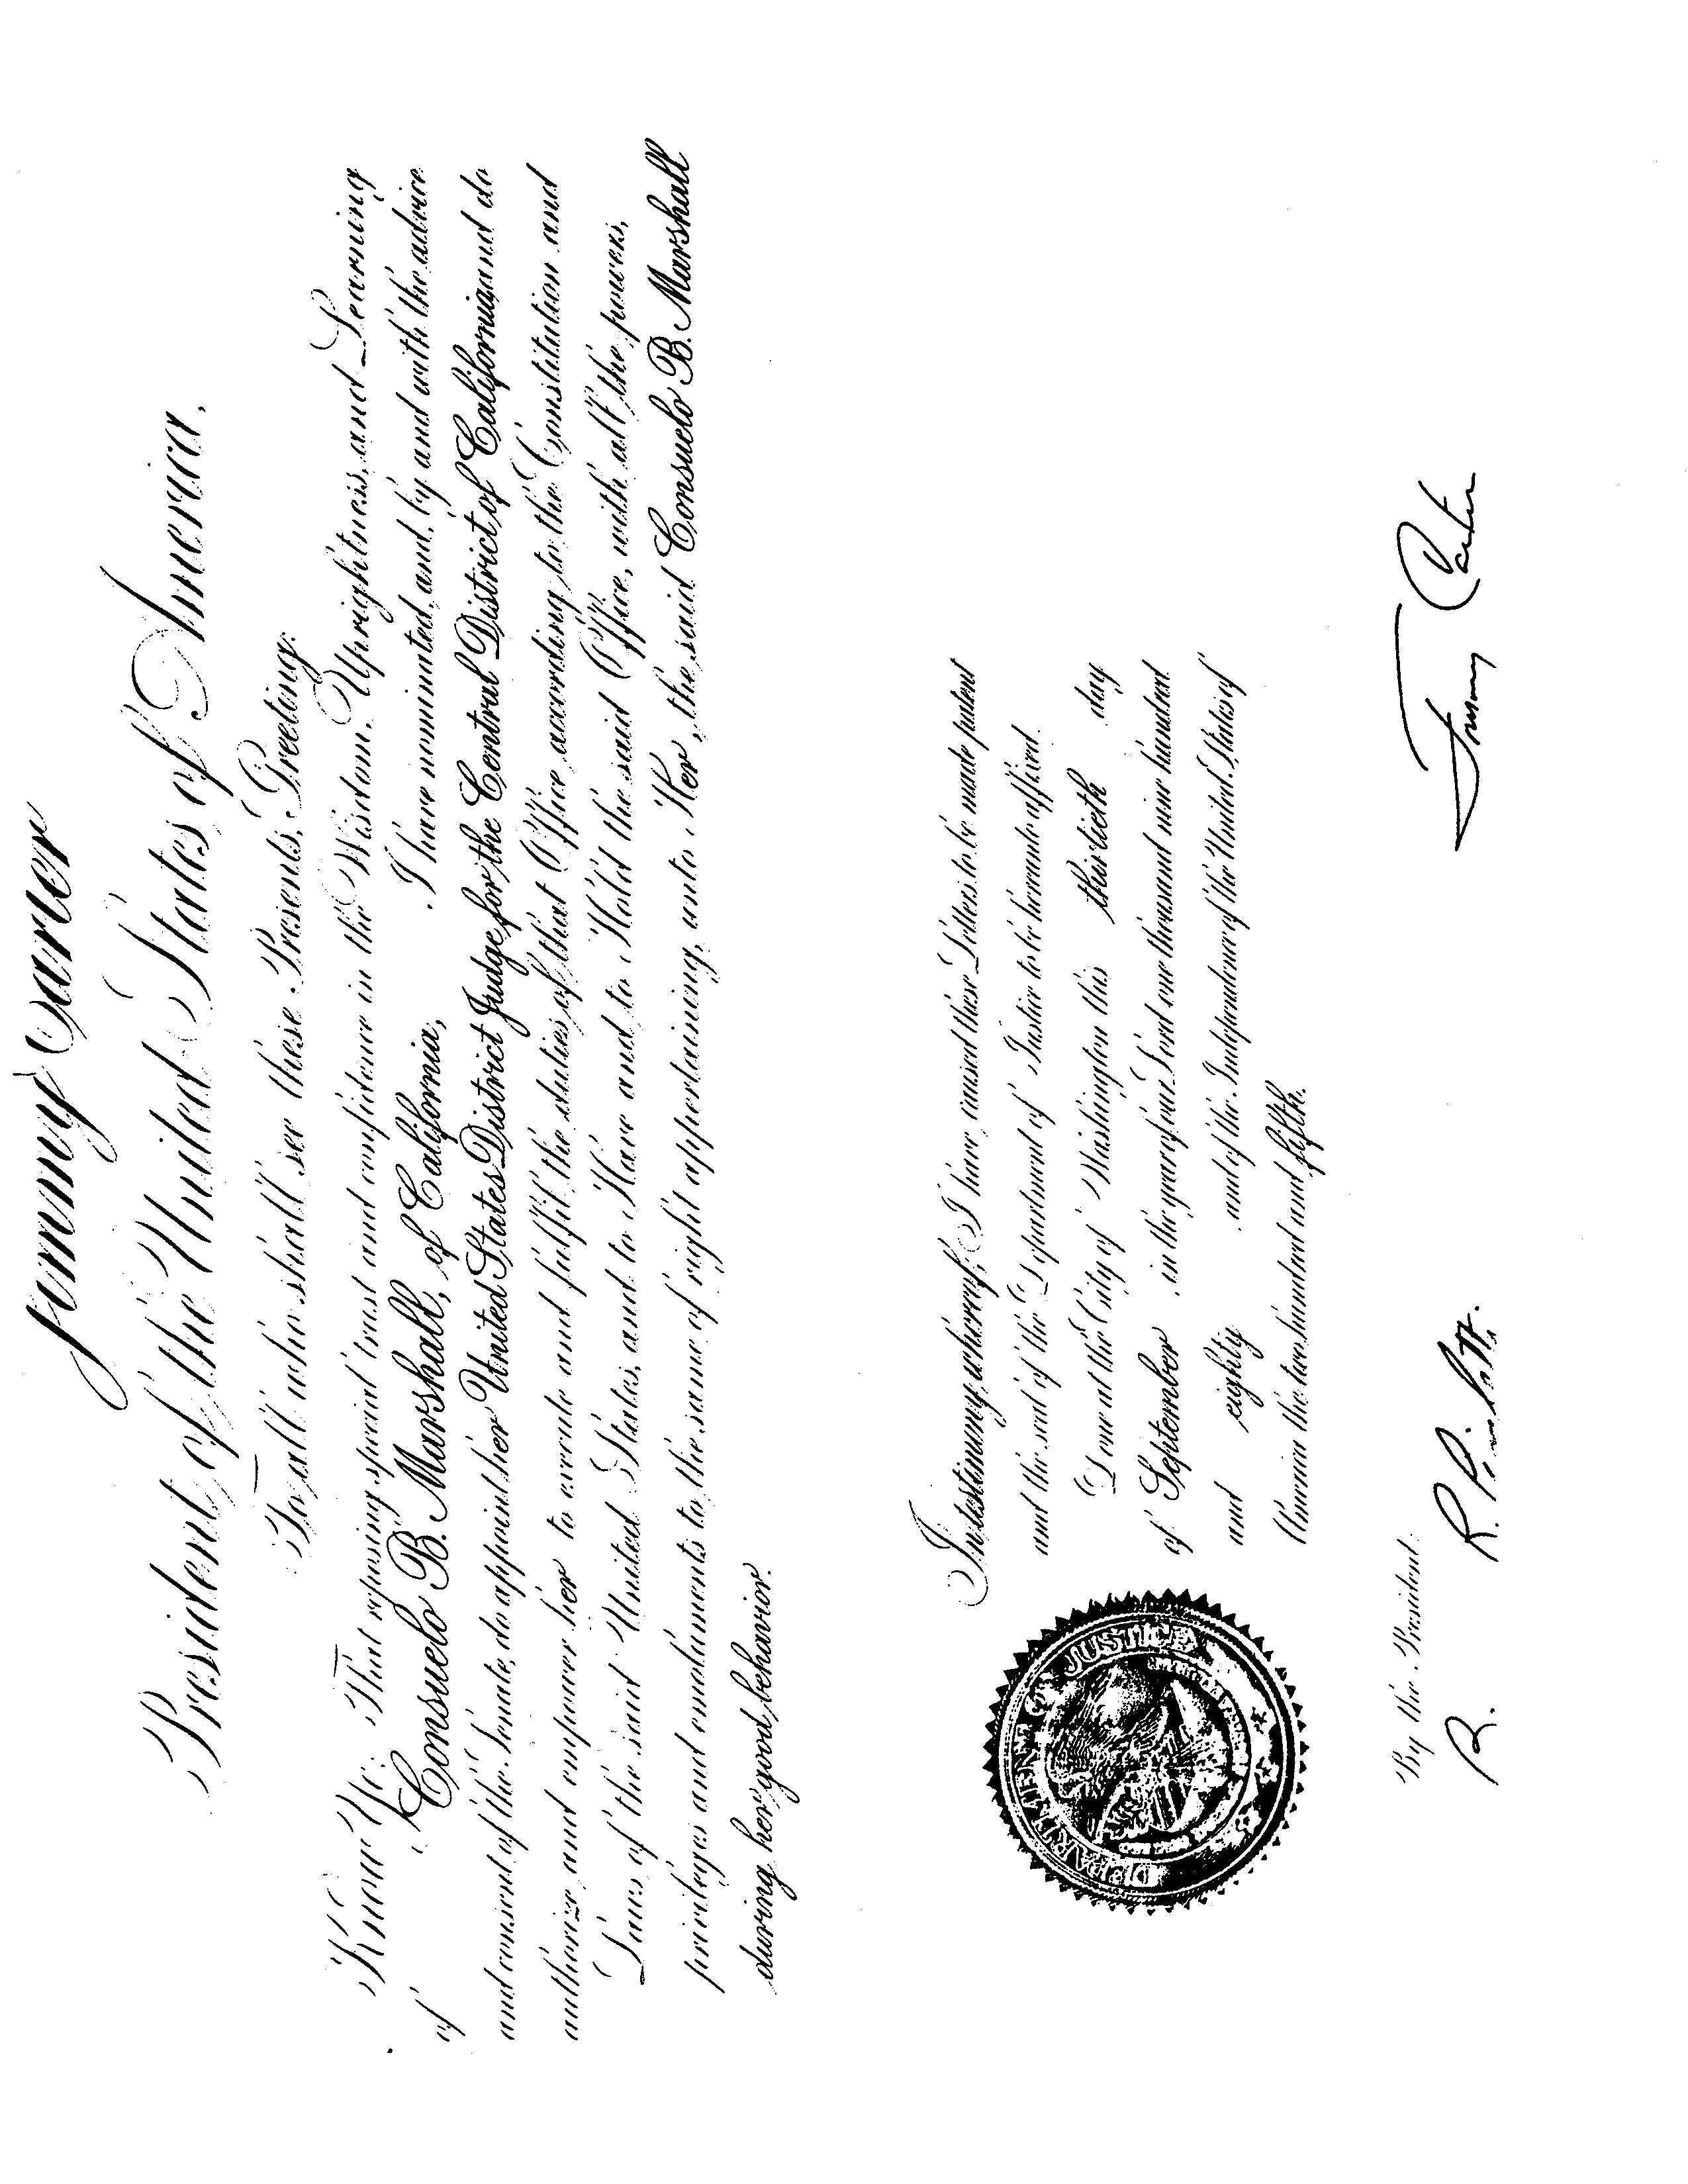 Jimmy Carter
President of the United States of America,
To all who shall see these Presents, Greeting:
Know Ye; That reposing special trust and confidence in the Wisdom, Uprightness, and Learning
of Consuelo B. Marshall, of California, I have nominated, and, by and with the advice
and consent of the Senate, do appoint her United States District Judge for the Central District of California and do
authorize and empower her to execute and fulfil the duties of that Office according to the Constitution and
Laws of the said United States, and to Have and to Hold the said Office, with all the powers,
privileges and emoluments to the same of right appertaining, unto Her, the said Consuelo B. Marshall
during her good behavior.
In testimony whereof, I have caused these Letters to be made patent
and the seal of the Department of Justice to be hereunto affixed.
Done at the City of Washington this thirtieth day
of September in the year of our Lord one thousand nine hundred
and eighty and of the Independence of the United States of
America the two hundred and fifth.
DEPARTMENT OF JUSTICE
Jimmy Carter
By the President:
R.